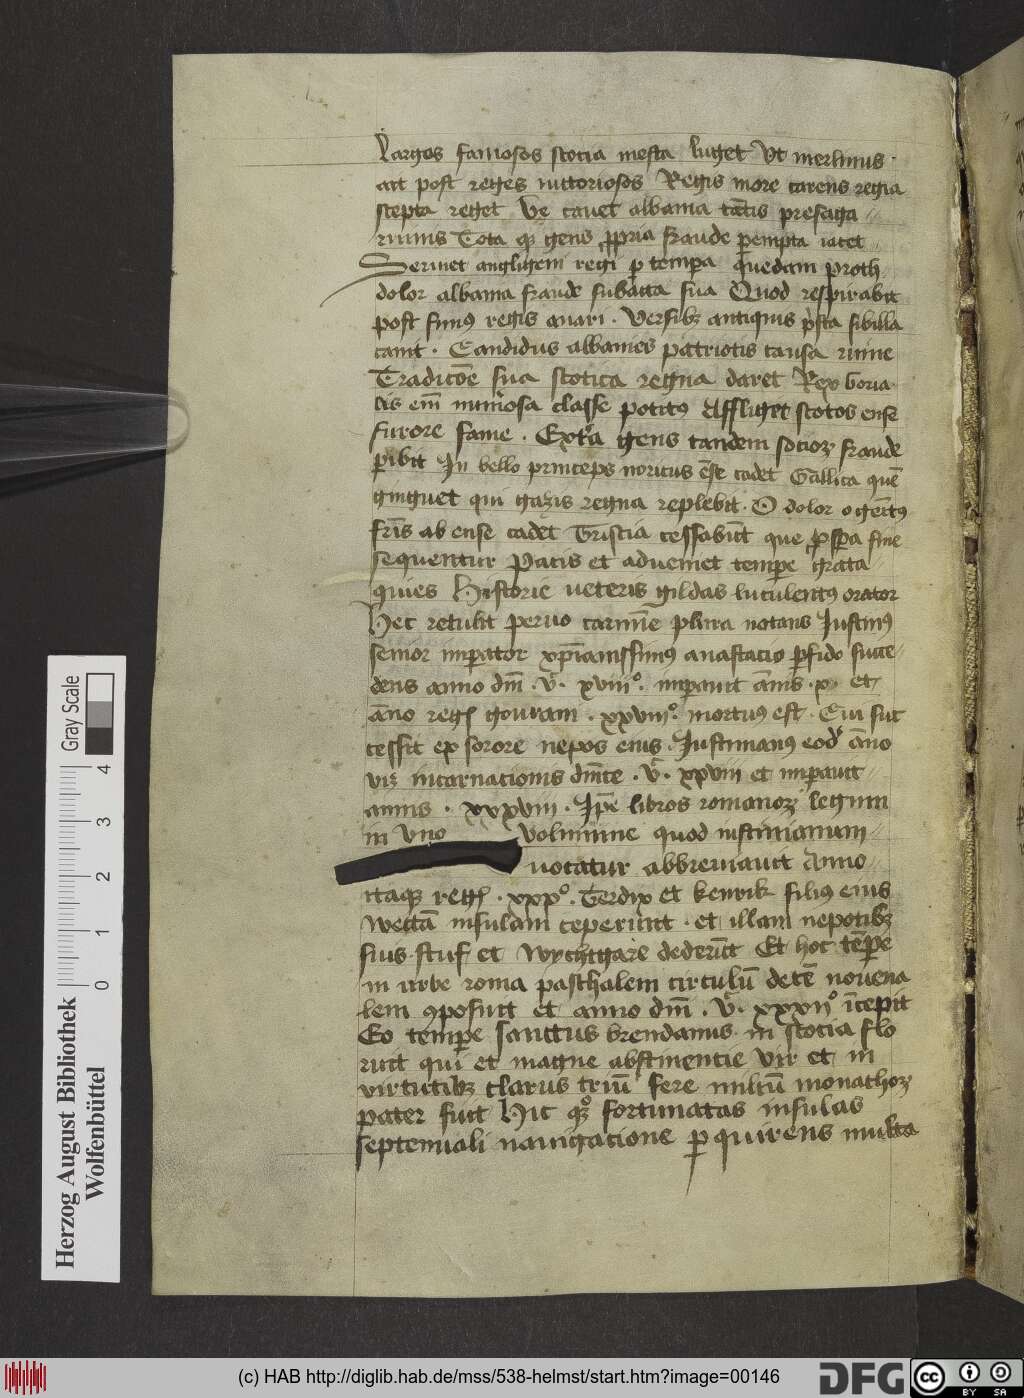 Largos famosos scocia mesta luget Vt merlinus
ait post reges victoriosos Regis more carens regia
scepta reget Ve cavet albania tactis presaga
ruinis Tota qz gens ppria fraude pempta iacet
Serviet angligeni regi p tempa quedam proth
dolor albania fraude subacta sua Quod respirabit
post funus regis avari . Versibz antiquis psta sibilla
canit . Candidus albanies patriotis causa ruine
Tradicoe sua scotica regna daret Rex boria
lis em numosa classe potitus Affliget scotos ense
furore fame . Extera gens tandem socioz fraude
pibit In bello princeps noricus ese cadet Gallica que
gignet qui gazis regna replebit . O dolor o gemitus
fris ab ense cadet Tristia cessabunt que pspa fine
sequentur Pacis et adveniet tempe grata
quies Historie veteris gildas luculentus orator
Hec retulit parvo carmine plura notans Justinus
senior imperator xpianissimus anastacio pfido succe
dens anno dni . v . xviii . imperavit annis . x . et
anno regs gouram . xxviii . mortuus est . Cui suc
cessit ex sorore nepos eius . Justinianus eod anno
viz incarnacionis dnice . v . xxviii et imperavit
annis . xxxviii . Ipe libros romanoz legum
in vno volumine quod iustinianum
vocatur abbreviavit Anno
itaqz regs . xxx . Cerdix et kenrik filius eius
Wectam insulam ceperunt . et illam nepotibz
suis . stuf et Wychtgare dederunt Et hoc tempe
in urbe roma paschalem circulum dece novena
lem composuit et anno dni . v . xxxii incepit
Eo tempe sanctus brendanus in scocia flo
ruit qui et magne abstinentie vir et in
virtutibz clarus trium fere milium monachoz
pater fuit Hic qz fortunatas insulas
septeniali navigacione pquirens multa
Herzog August Bibliothek
Wolfenbüttel
0 1 2 3 4
Gray Scale
(c) HAB http://diglib.hab.de/mss/538-helmst/start.htm?image=00146
DFG
cc BY SA